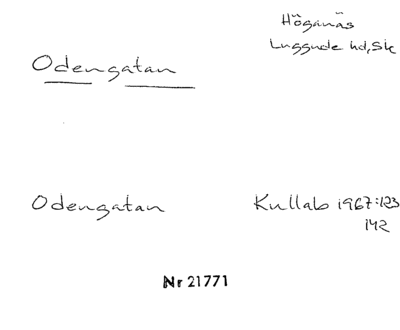 Höganäs
Luggude hd, Sk
Odengatan
Odengatan
Kullab 1967:123
142
Nr 21771